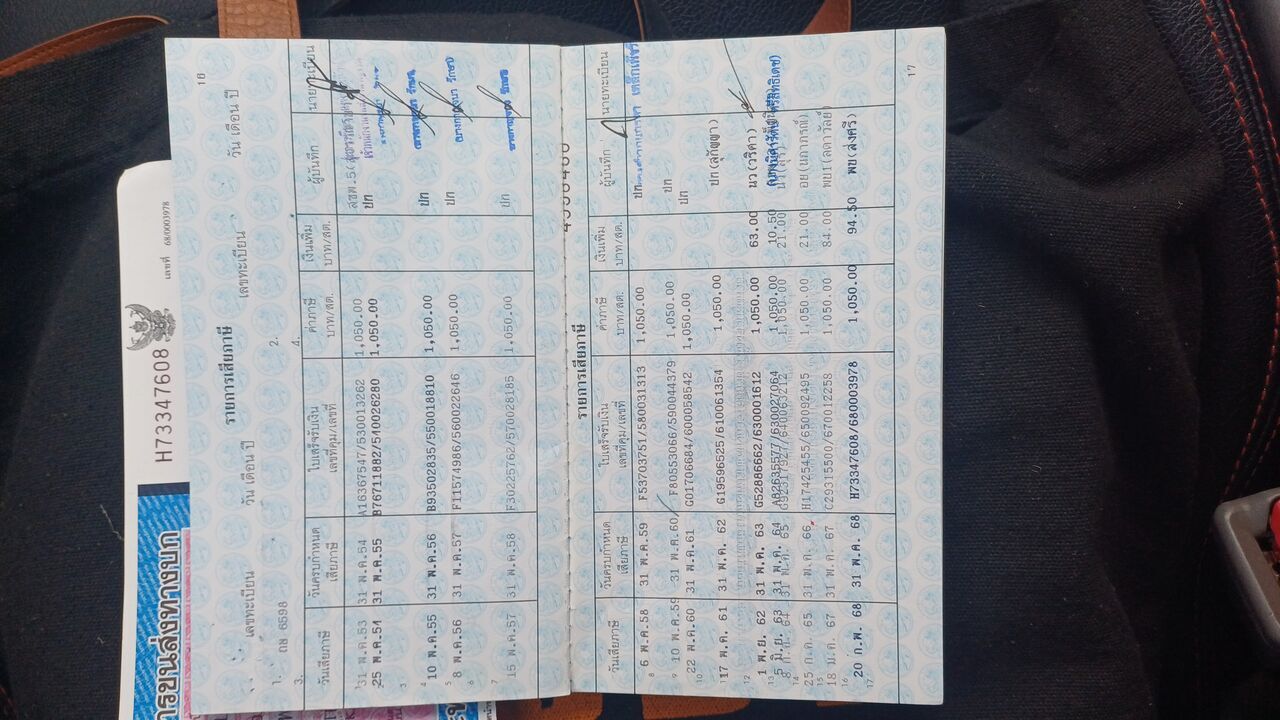 H73347608
เลขที่ 68/0003978
การขนส่งทางบก
16
รายการเสียภาษี
เลขทะเบียน วัน เดือน ปี เลขทะเบียน วัน เดือน ปี
1. ถษ 6598 2.
3. 4.
วันเสียภาษี วันครบกำหนดเสียภาษี ใบเสร็จรับเงิน เล่มที่คุม/เลขที่ ค่าภาษี บาท/สต. เงินเพิ่ม บาท/สต. ผู้บันทึก นายทะเบียน
31 พ.ค.53 31 พ.ค.54 A16367547/530013262 1,050.00 สขพ.5
25 พ.ค.54 31 พ.ค.55 B76711882/540026280 1,050.00 ปก
3
4 10 พ.ค.55 31 พ.ค.56 B93502835/550018810 1,050.00 ปก
5 8 พ.ค.56 31 พ.ค.57 F11574986/560022646 1,050.00 ปก
6
7 15 พ.ค.57 31 พ.ค.58 F30225762/570028185 1,050.00 ปก
รายการเสียภาษี
17
วันเสียภาษี วันครบกำหนดเสียภาษี ใบเสร็จรับเงิน เล่มที่คุม/เลขที่ ค่าภาษี บาท/สต. เงินเพิ่ม บาท/สต. ผู้บันทึก นายทะเบียน
8 6 พ.ค.58 31 พ.ค.59 F53703751/580031313 1,050.00 ปก
9 10 พ.ค.59 31 พ.ค.60 F80553066/590044379 1,050.00 ปก
10 22 พ.ค.60 31 พ.ค.61 G01706684/600058542 1,050.00 ปก
11 17 พ.ค. 61 31 พ.ค. 62 G19596525/610061354 1,050.00 ปก(สุกัญญา)
12 1 พ.ย. 62 31 พ.ค. 63 G52886662/630001612 1,050.00 63.00 นว(วริศา)
13 5 มิ.ย. 63 31 พ.ค. 64 A82635577/630027064 1,050.00 10.50
8 ก.ย. 64 31 พ.ค. 65 1,050.00 21.00
14 25 ก.ค. 65 31 พ.ค. 66 H17425455/650092495 1,050.00 21.00 อย(นภาภรณ์)
15 18 ม.ค. 67 31 พ.ค. 67 C29315500/670012258 1,050.00 84.00 พย1(ลดาวัลย์)
16 20 ก.พ. 68 31 พ.ค. 68 H73347608/680003978 1,050.00 94.50 พข(ส่งศรี)
17